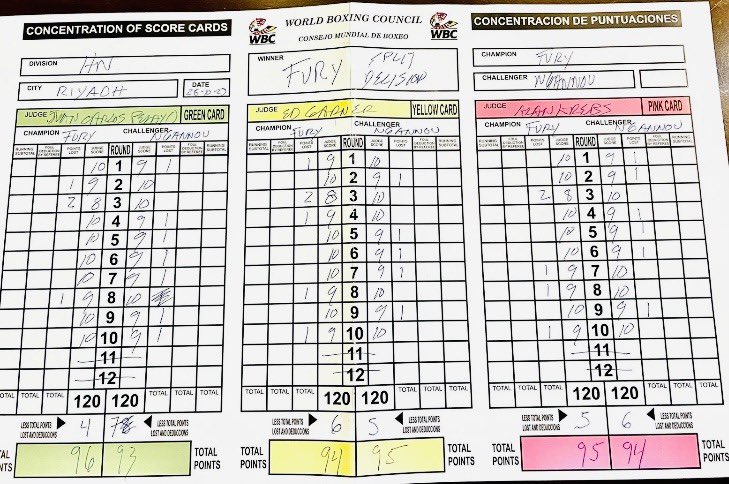 CONCENTRATION OF SCORE CARDS
WBC WORLD BOXING COUNCIL WBC
CONSEJO MUNDIAL DE BOXEO
CONCENTRACION DE PUNTUACIONES
DIVISION
CITY RIYADH DATE
WINNER FURY SPLIT DECISION
CHAMPION FURY
CHALLENGER NGANNOU
JUDGE JUAN CARLOS GREEN CARD
CHAMPION FURY CHALLENGER NGANNOU
RUNNING SUBTOTAL FOUL DEDUCTION BY REFEREE POINTS LOST JUDGE SCORE ROUND JUDGE SCORE POINTS LOST FOUL DEDUCTION BY REFEREE RUNNING SUBTOTAL
10 1 9 1
1 9 2 10
2 8 3 10
10 4 9 1
10 5 9 1
10 6 9 1
10 7 9 1
1 9 8 10
10 9 9 1
10 10 9 1
11
12
TOTAL TOTAL TOTAL 120 120 TOTAL TOTAL TOTAL
LESS TOTAL POINTS LOST AND DEDUCCIONS 4 7 LESS TOTAL POINTS LOST AND DEDUCCIONS
TOTAL POINTS 96 93 TOTAL POINTS
JUDGE ED GARNER YELLOW CARD
CHAMPION FURY CHALLENGER NGANNOU
RUNNING SUBTOTAL FOUL DEDUCTION BY REFEREE POINTS LOST JUDGE SCORE ROUND JUDGE SCORE POINTS LOST FOUL DEDUCTION BY REFEREE RUNNING SUBTOTAL
1 9 1 10
10 2 9 1
2 8 3 10
1 9 4 10
10 5 9 1
10 6 9 1
10 7 9 1
1 9 8 10
10 9 9 1
1 9 10 10
11
12
TOTAL TOTAL TOTAL 120 120 TOTAL TOTAL TOTAL
LESS TOTAL POINTS LOST AND DEDUCCIONS 6 5 LESS TOTAL POINTS LOST AND DEDUCCIONS
TOTAL POINTS 94 95 TOTAL POINTS
JUDGE ALAN KREBS PINK CARD
CHAMPION FURY CHALLENGER NGANNOU
RUNNING SUBTOTAL FOUL DEDUCTION BY REFEREE POINTS LOST JUDGE SCORE ROUND JUDGE SCORE POINTS LOST FOUL DEDUCTION BY REFEREE RUNNING SUBTOTAL
10 1 9 1
10 2 9 1
2 8 3 10
10 4 9 1
10 5 9 1
10 6 9 1
1 9 7 10
1 9 8 10
10 9 9 1
1 9 10 10
11
12
TOTAL TOTAL TOTAL 120 120 TOTAL TOTAL TOTAL
LESS TOTAL POINTS LOST AND DEDUCCIONS 5 6 LESS TOTAL POINTS LOST AND DEDUCCIONS
TOTAL POINTS 95 94 TOTAL POINTS